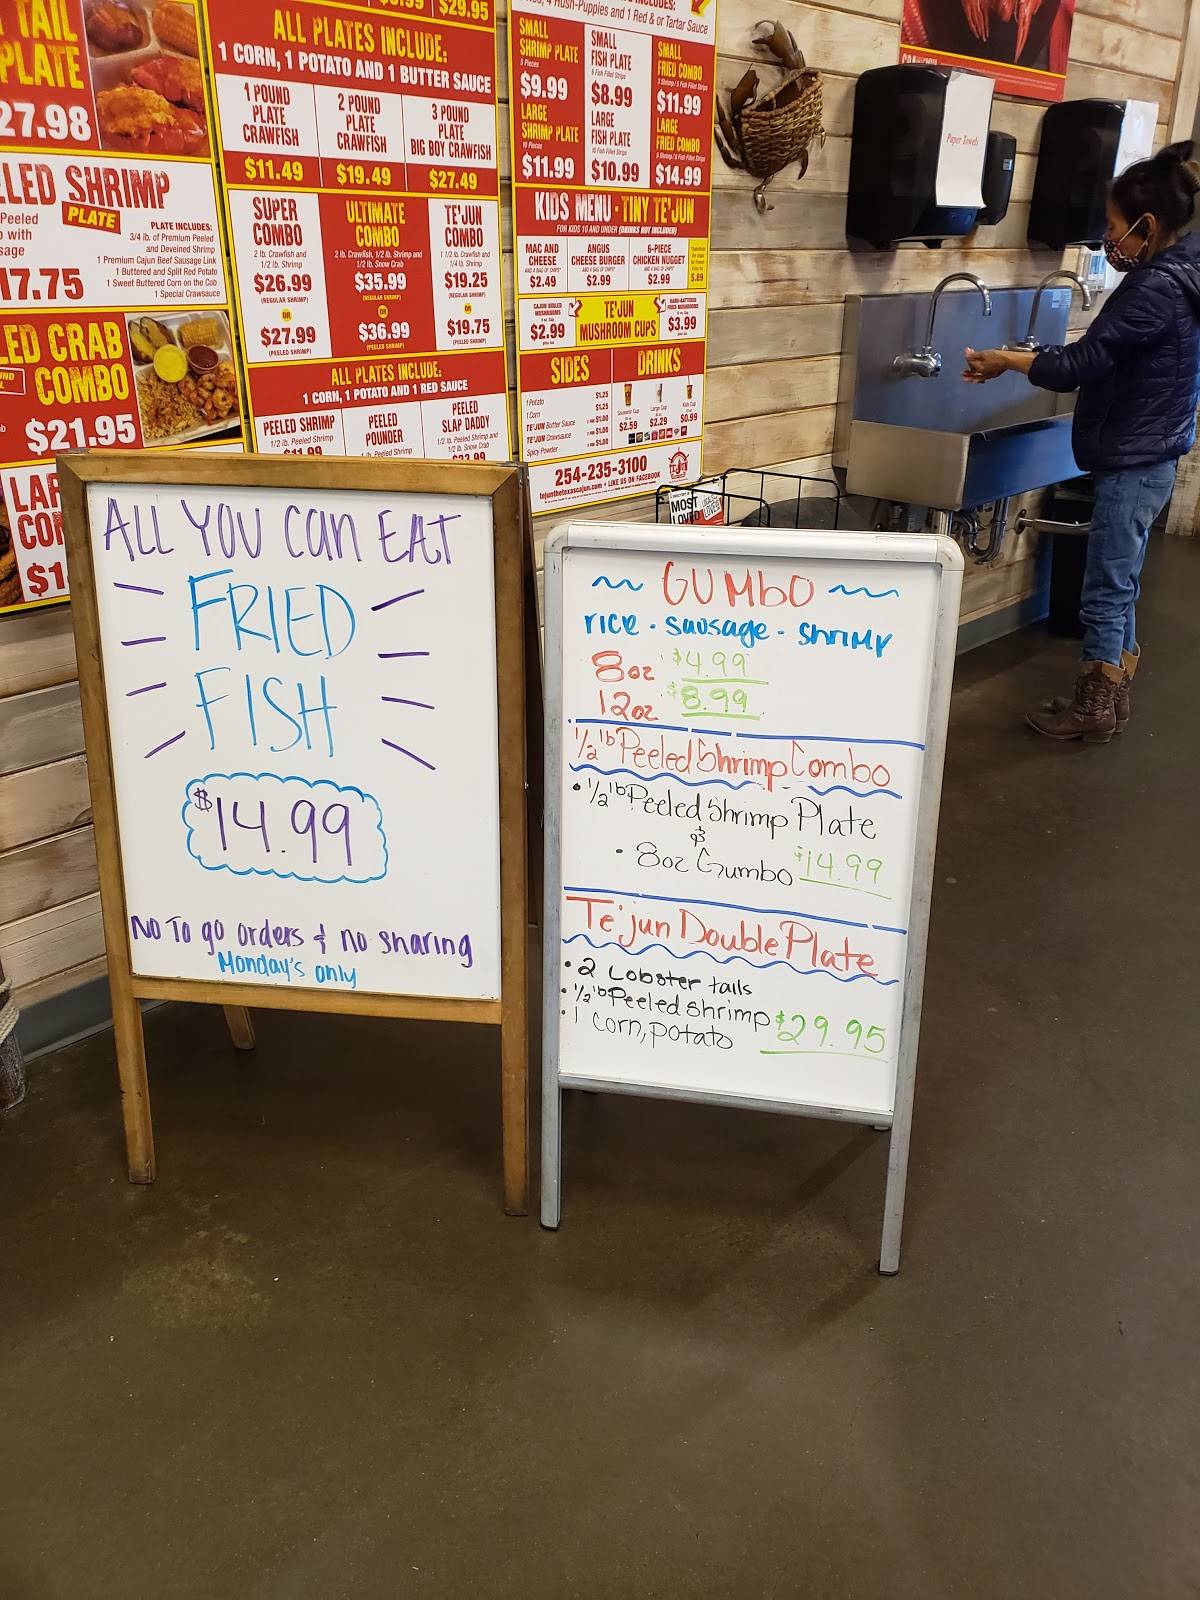 TAIL
PLATE
27.98
SHRIMP
PLATE
Peeled
with
PLATE INCLUDES:
3/4 lb. of Premium Peeled
and Deveined Shrimp
1 Premium Cajun Beef Sausage Link
1 Buttered and Split Red Potato
1 Sweet Buttered Corn on the Cob
1 Special Crawsauce
17.75
CRAB
COMBO
$21.95
$29.95
ALL PLATES INCLUDE:
1 CORN, 1 POTATO AND 1 BUTTER SAUCE
1 POUND
PLATE
CRAWFISH
$11.49
2 POUND
PLATE
CRAWFISH
$19.49
3 POUND
PLATE
BIG BOY CRAWFISH
$27.49
SUPER
COMBO
2 lb. Crawfish and
1/2 lb. Shrimp
$26.99
(REGULAR SHRIMP)
OR
$27.99
(PEELED SHRIMP)
ULTIMATE
COMBO
2 lb. Crawfish, 1/2 lb. Shrimp and
1/2 lb. Snow Crab
$35.99
(REGULAR SHRIMP)
OR
$36.99
(PEELED SHRIMP)
TE'JUN
COMBO
1 1/2 lb. Crawfish and
1/4 lb. Shrimp
$19.25
(REGULAR SHRIMP)
OR
$19.75
(PEELED SHRIMP)
ALL PLATES INCLUDE:
1 CORN, 1 POTATO AND 1 RED SAUCE
PEELED SHRIMP
1/2 lb. Peeled Shrimp
PEELED
POUNDER
1 lb. Peeled Shrimp
PEELED
SLAP DADDY
1/2 lb. Peeled Shrimp and
1/2 lb. Snow Crab
Hush-Puppies and 1 Red & or Tartar Sauce
SMALL
SHRIMP PLATE
5 Pieces
$9.99
LARGE
SHRIMP PLATE
10 Pieces
$11.99
SMALL
FISH PLATE
$8.99
LARGE
FISH PLATE
$10.99
SMALL
FRIED COMBO
$11.99
LARGE
FRIED COMBO
$14.99
KIDS MENU - TINY TE'JUN
FOR KIDS 10 AND UNDER (DRINKS NOT INCLUDED)
MAC AND
CHEESE
AND A BAG OF CHIPS
$2.49
ANGUS
CHEESE BURGER
AND A BAG OF CHIPS
$2.99
6-PIECE
CHICKEN NUGGET
AND A BAG OF CHIPS
$2.99
$.89
CAJUN BOILED
MUSHROOMS
$2.99
TE'JUN
MUSHROOM CUPS
$3.99
SIDES
1 Potato $1.25
1 Corn $1.25
TE'JUN Butter Sauce $1.00
TE'JUN Crawsauce $1.00
Spicy Powder $1.00
DRINKS
Souvenir Cup
$2.59
Large Cup
$2.29
Kids Cup
$0.99
254-235-3100
tejunthetexascajun.com • LIKE US ON FACEBOOK
Paper Towels
MOST
LOVED
ALL YOU Can EAT
FRIED
FISH
$14.99
NO To go orders & no sharing
Monday's only
GUMbO
rice - sausage - shrimp
8oz $4.99
12oz $8.99
1/2 lb Peeled Shrimp Combo
• 1/2 lb Peeled Shrimp Plate
&
• 8oz Gumbo $14.99
Te'jun Double Plate
• 2 Lobster tails
• 1/2 lb Peeled shrimp
• 1 corn, potato $29.95